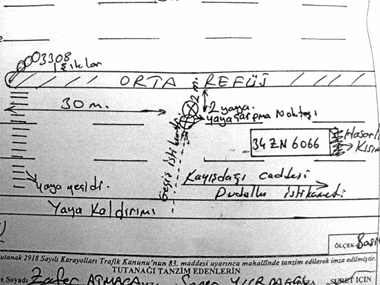 03308
ışıklar
ORTA REFÜJ
2 m.
30 m.
2 yaya.
yaya çarpma Noktası
Geçiş istikameti
34 ZN 6066
Hasarlı
Kısım
yaya geçidi.
Kayışdağı caddesi
Dudullu istikameti
Yaya Kaldırımı
ÖLÇEK
tutanak 2918 Sayılı Karayolları Trafik Kanunu'nun 83. maddesi uyarınca mahallinde tanzim edilerek imza edilmiştir.
TUTANAĞI TANZİM EDENLERİN
Soyadı Zafer
SURET İÇİN